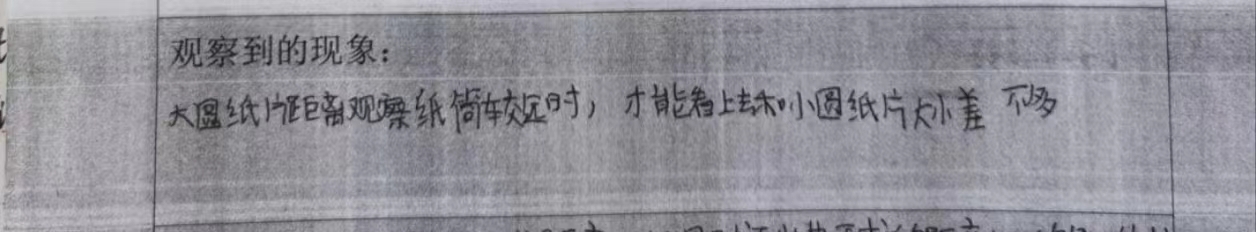 观察到的现象:
大圆纸片距离观察纸筒较远时，才能看上去和小圆纸片大小差不多